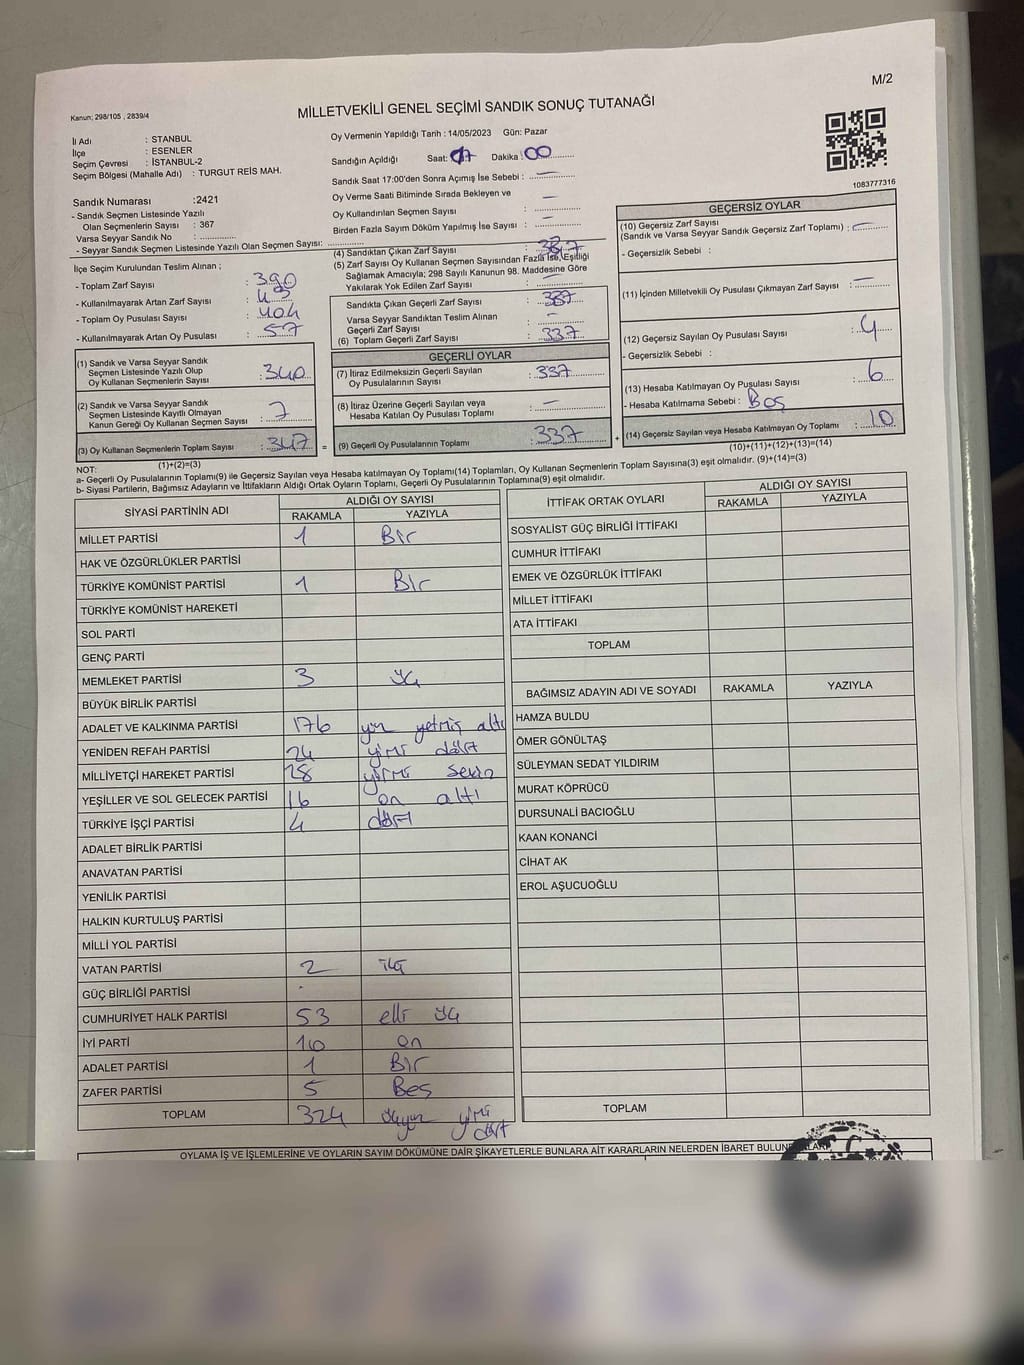 M/2
Kanun; 298/105 , 2839/4
MİLLETVEKİLİ GENEL SEÇİMİ SANDIK SONUÇ TUTANAĞI
İl Adı : İSTANBUL
İlçe : ESENLER
Seçim Çevresi : İSTANBUL-2
Seçim Bölgesi (Mahalle Adı) : TURGUT REİS MAH.
Sandık Numarası :2421
- Sandık Seçmen Listesinde Yazılı
Olan Seçmenlerin Sayısı : 367
Varsa Seyyar Sandık No :
- Seyyar Sandık Seçmen Listesinde Yazılı Olan Seçmen Sayısı:
Oy Vermenin Yapıldığı Tarih : 14/05/2023 Gün: Pazar
Sandığın Açıldığı Saat: 17 Dakika : 00
Sandık Saat 17:00'den Sonra Açımış İse Sebebi : —
Oy Verme Saati Bitiminde Sırada Bekleyen ve
Oy Kullandırılan Seçmen Sayısı : —
Birden Fazla Sayım Döküm Yapılmış İse Sayısı : —
1083777316
İlçe Seçim Kurulundan Teslim Alınan ;
- Toplam Zarf Sayısı : 390
- Kullanılmayarak Artan Zarf Sayısı : 43
- Toplam Oy Pusulası Sayısı : 404
- Kullanılmayarak Artan Oy Pusulası : 57
(1) Sandık ve Varsa Seyyar Sandık
Seçmen Listesinde Yazılı Olup
Oy Kullanan Seçmenlerin Sayısı : 340
(2) Sandık ve Varsa Seyyar Sandık
Seçmen Listesinde Kayıtlı Olmayan
Kanun Gereği Oy Kullanan Seçmen Sayısı : 7
(3) Oy Kullanan Seçmenlerin Toplam Sayısı : 347
(1)+(2)=(3)
(4) Sandıktan Çıkan Zarf Sayısı :
(5) Zarf Sayısı Oy Kullanan Seçmen Sayısından Fazla İse, Eşitliği
Sağlamak Amacıyla; 298 Sayılı Kanunun 98. Maddesine Göre
Yakılarak Yok Edilen Zarf Sayısı : —
Sandıkta Çıkan Geçerli Zarf Sayısı : 337
Varsa Seyyar Sandıktan Teslim Alınan
Geçerli Zarf Sayısı : —
(6) Toplam Geçerli Zarf Sayısı : 337
GEÇERLİ OYLAR
(7) İtiraz Edilmeksizin Geçerli Sayılan
Oy Pusulalarının Sayısı : 337
(8) İtiraz Üzerine Geçerli Sayılan veya
Hesaba Katılan Oy Pusulası Toplamı : —
= (9) Geçerli Oy Pusulalarının Toplamı : 337
GEÇERSİZ OYLAR
(10) Geçersiz Zarf Sayısı
(Sandık ve Varsa Seyyar Sandık Geçersiz Zarf Toplamı) : —
- Geçersizlik Sebebi :
(11) İçinden Milletvekili Oy Pusulası Çıkmayan Zarf Sayısı : —
(12) Geçersiz Sayılan Oy Pusulası Sayısı : 4
- Geçersizlik Sebebi :
(13) Hesaba Katılmayan Oy Pusulası Sayısı : 6
- Hesaba Katılmama Sebebi : Boş
+ (14) Geçersiz Sayılan veya Hesaba Katılmayan Oy Toplamı : 10
(10)+(11)+(12)+(13)=(14)
NOT:
a- Geçerli Oy Pusulalarının Toplamı(9) ile Geçersiz Sayılan veya Hesaba katılmayan Oy Toplamı(14) Toplamları, Oy Kullanan Seçmenlerin Toplam Sayısına(3) eşit olmalıdır. (9)+(14)=(3)
b- Siyasi Partilerin, Bağımsız Adayların ve İttifakların Aldığı Ortak Oyların Toplamı, Geçerli Oy Pusulalarının Toplamına(9) eşit olmalıdır.
SİYASİ PARTİNİN ADI ALDIĞI OY SAYISI
RAKAMLA YAZIYLA
MİLLET PARTİSİ 1 Bir
HAK VE ÖZGÜRLÜKLER PARTİSİ
TÜRKİYE KOMÜNİST PARTİSİ 1 Bir
TÜRKİYE KOMÜNİST HAREKETİ
SOL PARTİ
GENÇ PARTİ
MEMLEKET PARTİSİ 3 üç
BÜYÜK BİRLİK PARTİSİ
ADALET VE KALKINMA PARTİSİ 176 yüz yetmiş altı
YENİDEN REFAH PARTİSİ 24 yirmi dört
MİLLİYETÇİ HAREKET PARTİSİ 28 yirmi sekiz
YEŞİLLER VE SOL GELECEK PARTİSİ 16 on altı
TÜRKİYE İŞÇİ PARTİSİ 4 dört
ADALET BİRLİK PARTİSİ
ANAVATAN PARTİSİ
YENİLİK PARTİSİ
HALKIN KURTULUŞ PARTİSİ
MİLLİ YOL PARTİSİ
VATAN PARTİSİ 2 iki
GÜÇ BİRLİĞİ PARTİSİ
CUMHURİYET HALK PARTİSİ 53 elli üç
İYİ PARTİ 10 on
ADALET PARTİSİ 1 Bir
ZAFER PARTİSİ 5 Beş
TOPLAM 324 üçyüz yirmi dört
İTTİFAK ORTAK OYLARI ALDIĞI OY SAYISI
RAKAMLA YAZIYLA
SOSYALİST GÜÇ BİRLİĞİ İTTİFAKI
CUMHUR İTTİFAKI
EMEK VE ÖZGÜRLÜK İTTİFAKI
MİLLET İTTİFAKI
ATA İTTİFAKI
TOPLAM
BAĞIMSIZ ADAYIN ADI VE SOYADI RAKAMLA YAZIYLA
HAMZA BULDU
ÖMER GÖNÜLTAŞ
SÜLEYMAN SEDAT YILDIRIM
MURAT KÖPRÜCÜ
DURSUNALİ BACIOĞLU
KAAN KONANCİ
CİHAT AK
EROL AŞUCUOĞLU
TOPLAM
OYLAMA İŞ VE İŞLEMLERİNE VE OYLARIN SAYIM DÖKÜMÜNE DAİR ŞİKAYETLERLE BUNLARA AİT KARARLARIN NELERDEN İBARET